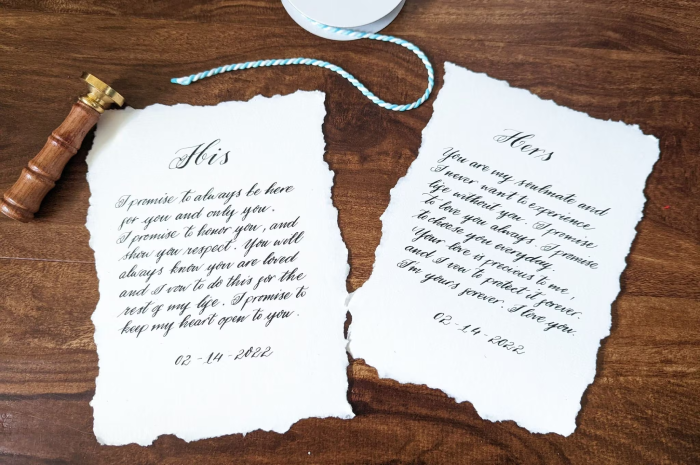 His
I promise to always be here
for you and only you.
I promise to honor you, and
show you respect. You will
always know you are loved
and I vow to do this for the
rest of my life. I promise to
keep my heart open to you.
02-14-2022
Hers
You are my soulmate and
I never want to experience
life without you. I promise
to love you always. I promise
to choose you everyday.
Your love is precious to me,
and I vow to protect it forever.
I'm yours forever. I love you.
02-14-2022